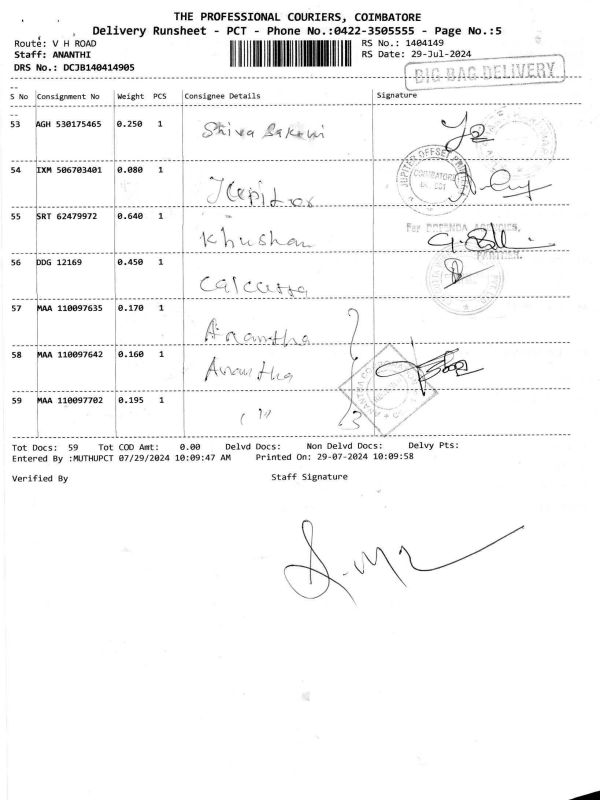 THE PROFESSIONAL COURIERS, COIMBATORE
Delivery Runsheet - PCT - Phone No.:0422-3505555 - Page No.:5
Route: V H ROAD RS No.: 1404149
Staff: ANANTHI RS Date: 29-Jul-2024
DRS No.: DCJB140414905
BIG BAG DELIVERY
S No Consignment No Weight PCS Consignee Details Signature
53 AGH 530175465 0.250 1 Shiva Sakthi
54 IXM 506703401 0.080 1 Jupitor
JUPITER OFFSET PRINTERS COIMBATORE
55 SRT 62479972 0.640 1 Khushan
For AGENCIES,
PARTNER.
56 DDG 12169 0.450 1 Calcutta
57 MAA 110097635 0.170 1 Anantha
58 MAA 110097642 0.160 1 Anantha
59 MAA 110097702 0.195 1 ( '' ) 3
Tot Docs: 59 Tot COD Amt: 0.00 Delvd Docs: Non Delvd Docs: Delvy Pts:
Entered By :MUTHUPCT 07/29/2024 10:09:47 AM Printed On: 29-07-2024 10:09:58
Verified By Staff Signature